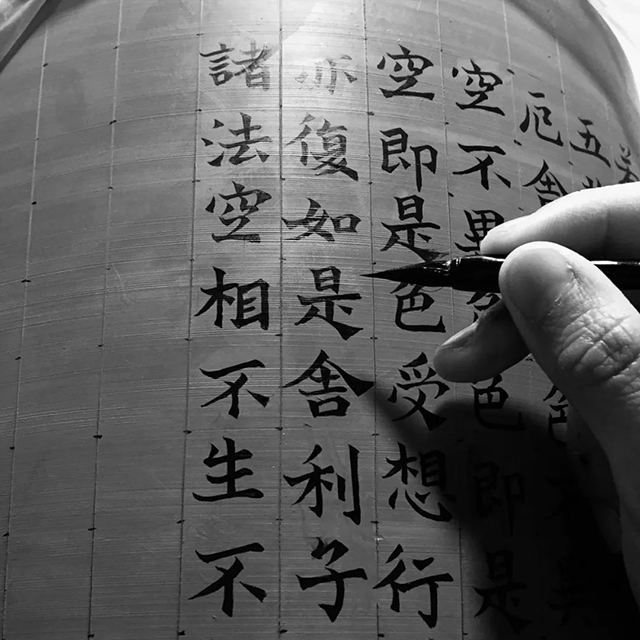 五
厄舍色不異
空不異色色即是
空即是色受想行
亦復如是舍利子
諸法空相不生不